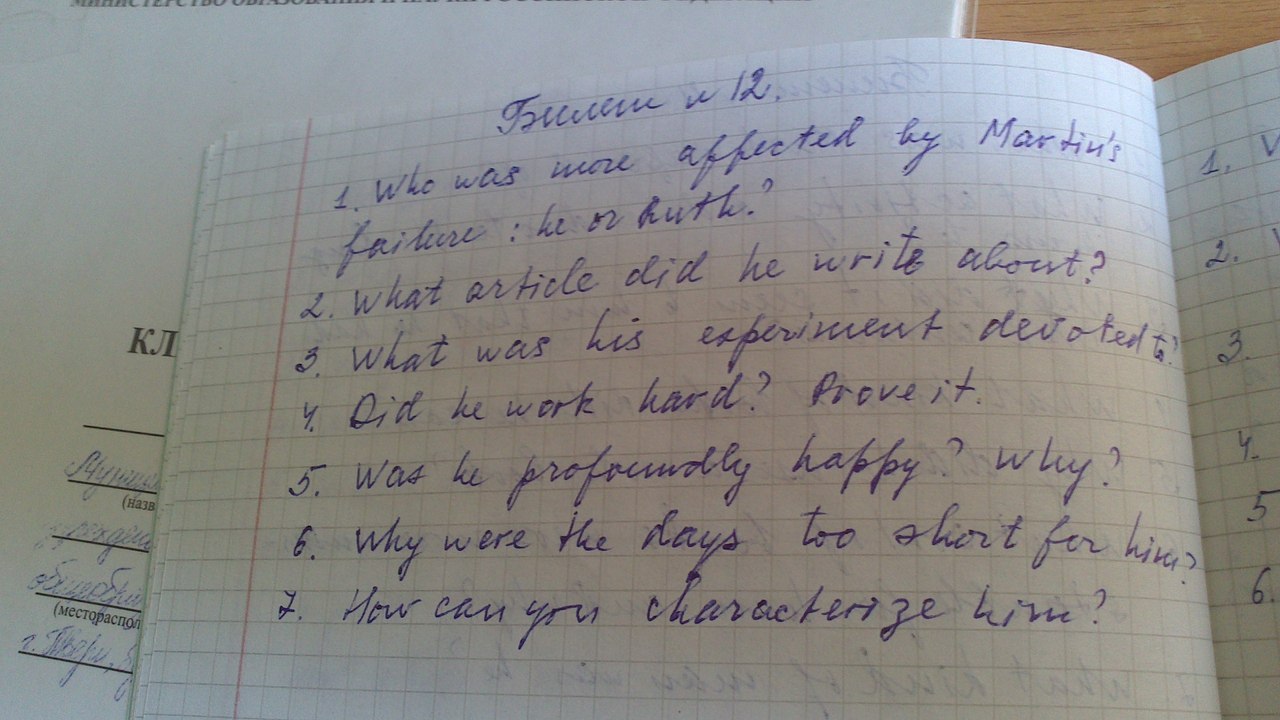 МИНИСТЕРСТВО ОБРАЗОВАНИЯ И НАУКИ РОССИЙСКОЙ ФЕДЕРАЦИИ
Билет № 12.
1. Who was more affected by Martin's
failure : he or Ruth?
2. What article did he write about?
3. What was his experiment devoted to?
4. Did he work hard? Prove it.
5. Was he profoundly happy? Why?
6. Why were the days too short for him?
7. How can you characterize him?
КЛ
(назв
(местораспол
г. Твери,
1.
2.
3.
4.
5
6.